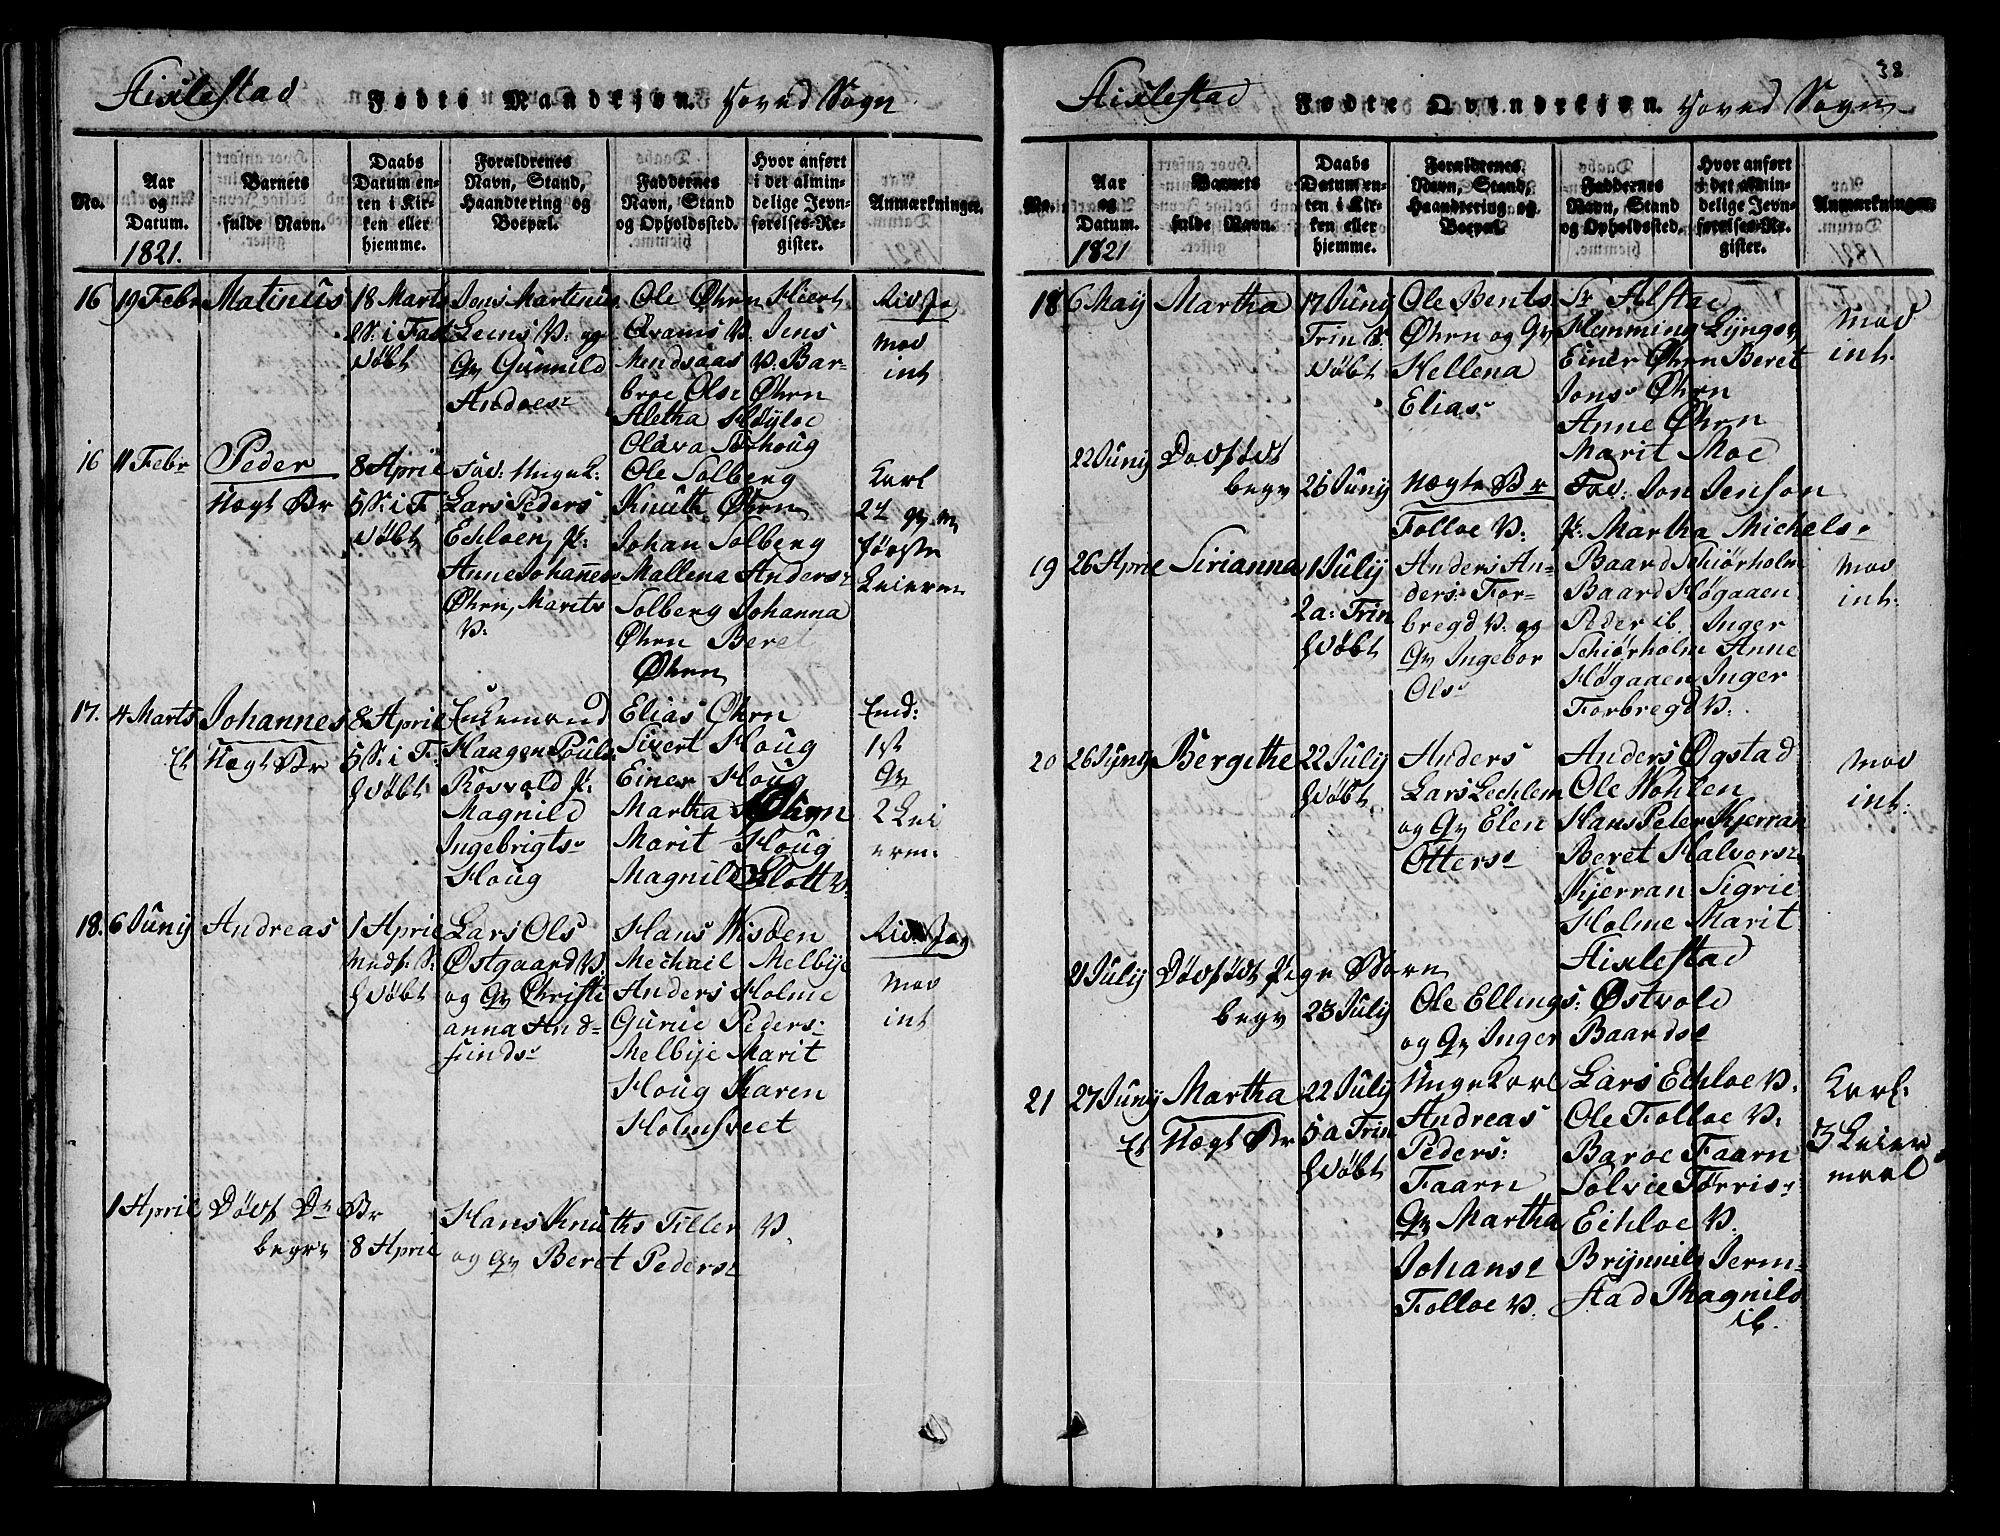 Aixlestad Fødte Mandkjøn. Hoved Sogn
No.
Aar og Datum. 1821.
Barnets fulde Navn.
Daabs Datum enten i Kirken eller hjemme.
Forældrenes Navn, Stand, Haandtering og Boepæl.
Faddernes Navn, Stand og Opholdssted.
Hvor anført i det almindelige Jevnførelses-Register.
Anmærkninger.
16 19 Febr Matinus 18 Marts
2 S. i Fast
døbt
Jons Martinus
Leins V. og
Qv Gunnild
Andoes
Ole Øhrn Hiert
Qvams V. Jens
Mendsaas V. Bar-
broe Olse Øhrn
Aletha Høylse
Olava Torhoug
mod
int
16 11 Febr Peder 8 April
Uægt Br 5 S. i F.
døbt
Fad: Unge K:
Lars Peders
Echloen P:
Anne Johannes
Øhrn, Marits
V:
Ole Solberg
Knuth Øhrn
Johan Solberg
Mallena Anders
Solberg Johanna
Øhrn Beret
Øhrn
Karl
2
første
Leierm
17. 4 Marts Johannes 8 April
Et Uægt Br 5 S. i F.
døbt
Enkemand
Haagen Pouls
Rosvold P:
Magnild
Ingebrigts
Houg
Elias Øhrn
Sivert Houg
Einer Houg
Martha Øhrn
Marit Houg
Magnild Slott V.
Enk:
1st
Qv
2 Lei
erm.
18. 6 Juny Andreas 1 April
døbt
Lars Ols
Østgaard V.
og Qv Christi
anna And-
finds
Hans Wisden
Mechail Melbye
Anders Holme
Gurue Peders
Melbye Marit
Houg Karen
Holmsveet
mod
int
1 April Dødf Dr Br
begr 8 April
Hans Knuths Tiller V.
og Qv Beret Peders
Aixlestad Fødte Qvindekjøn. Hoved Sogn 38
No.
Aar og Datum. 1821
Barnets fulde Navn.
Daabs Datum enten i Kirken eller hjemme.
Forældrenes Navn, Stand, Haandtering og Boepæl.
Faddernes Navn, Stand og Opholdssted.
Hvor anført i det almindelige Jevnførelses-Register.
Anmærkninger.
18 6 May Martha 17 Juny
Trin S.
døbt
Ole Bents
Øhrn og Qv
Hellena
Elias
Sr Alstad
Hemming Lyngs
Einer Øhrn Beret
Jons Øhrn
Anne Øhrn
Marit Moe
mod
int.
22 Juny Dødfødt
begr 25 Juny
Uægte Br
Folloe V.
Fad: Jon Jenson
P. Martha Michels
19 26 April Sirianna 1 July
2 a: Trin
døbt
Anders An-
ders: For-
bregd V. og
Qv Ingebor
Ols
Baard Schiørholm
Baard Høgaaen
Peder ib. Inger
Schiørholm Anne
Høgaaen Inger
Forbregd V.
mod
int.
20 26 Juny Bergithe 22 July
døbt
Anders
Lars Lechlem
og Qv Elen
Otters
Anders Øgstad
Ole Wohlen
Hans Peter Kjerran
Beret Halvors
Kjerran Sigrie
Holme Marit
Aixlestad
mod
int.
21 July Dødfødt Pige Børn
begr 23 July
Ole Ellings: Østvold
og Qv Inger Baards
21 27 Juny Martha 22 July
Et Uægt Br 5 a Trin
døbt
Unge Karl
Andreas
Peders:
Faarn
Qv Martha
Johans
Folloe V.
Lars Echloe V.
Ole Folloe V.
Baroe Faarn
Solvie Torris
Eichloe V.
Brynnild Jerm-
stad Magnild
ib.
Karl:
3 Leier
maal